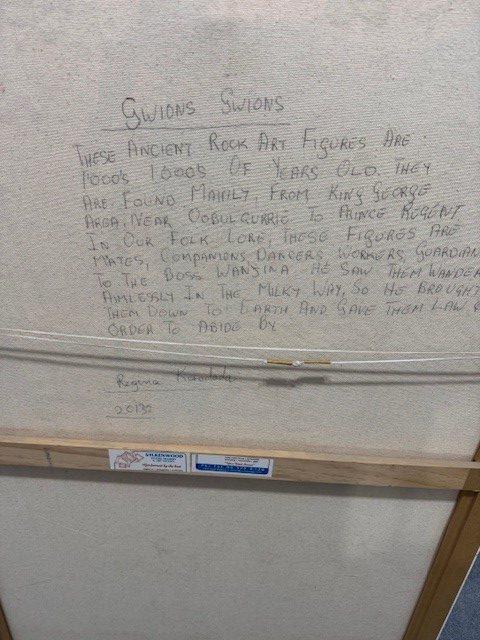 GWIONS GWIONS
THESE ANCIENT ROCK ART FIGURES ARE
1'000'S 1000'S OF YEARS OLD. THEY
ARE FOUND MAINLY, FROM KING GEORGE
AREA, NEAR OOBULGURRIE TO PRINCE REGENT
IN OUR FOLK LORE, THESE FIGURES ARE
MATES, COMPANIONS, DANCERS, WORKERS, GUARDIAN
TO THE BOSS WANJINA HE SAW THEM WANDER
AIMLESSLY IN THE MILKY WAY, SO HE BROUGHT
THEM DOWN TO EARTH AND GAVE THEM LAW &
ORDER TO ABIDE BY
Regina Karadada
SILKENWOOD